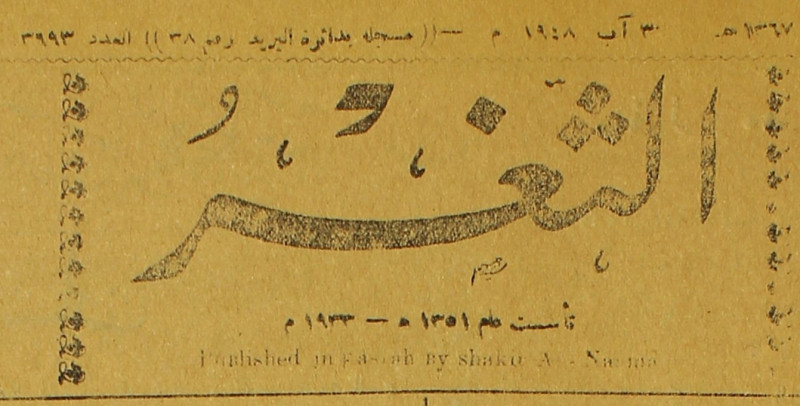 ١٣٦٧ هـ ٣٠ آب ١٩٤٨ م — ((مسجله بدائرة البريد رقم ٣٨)) العدد ٣٩٩٣
الثغر
تأسست عام ١٣٥١ هـ — ١٩٣٣ م
Published in Basrah By shakir